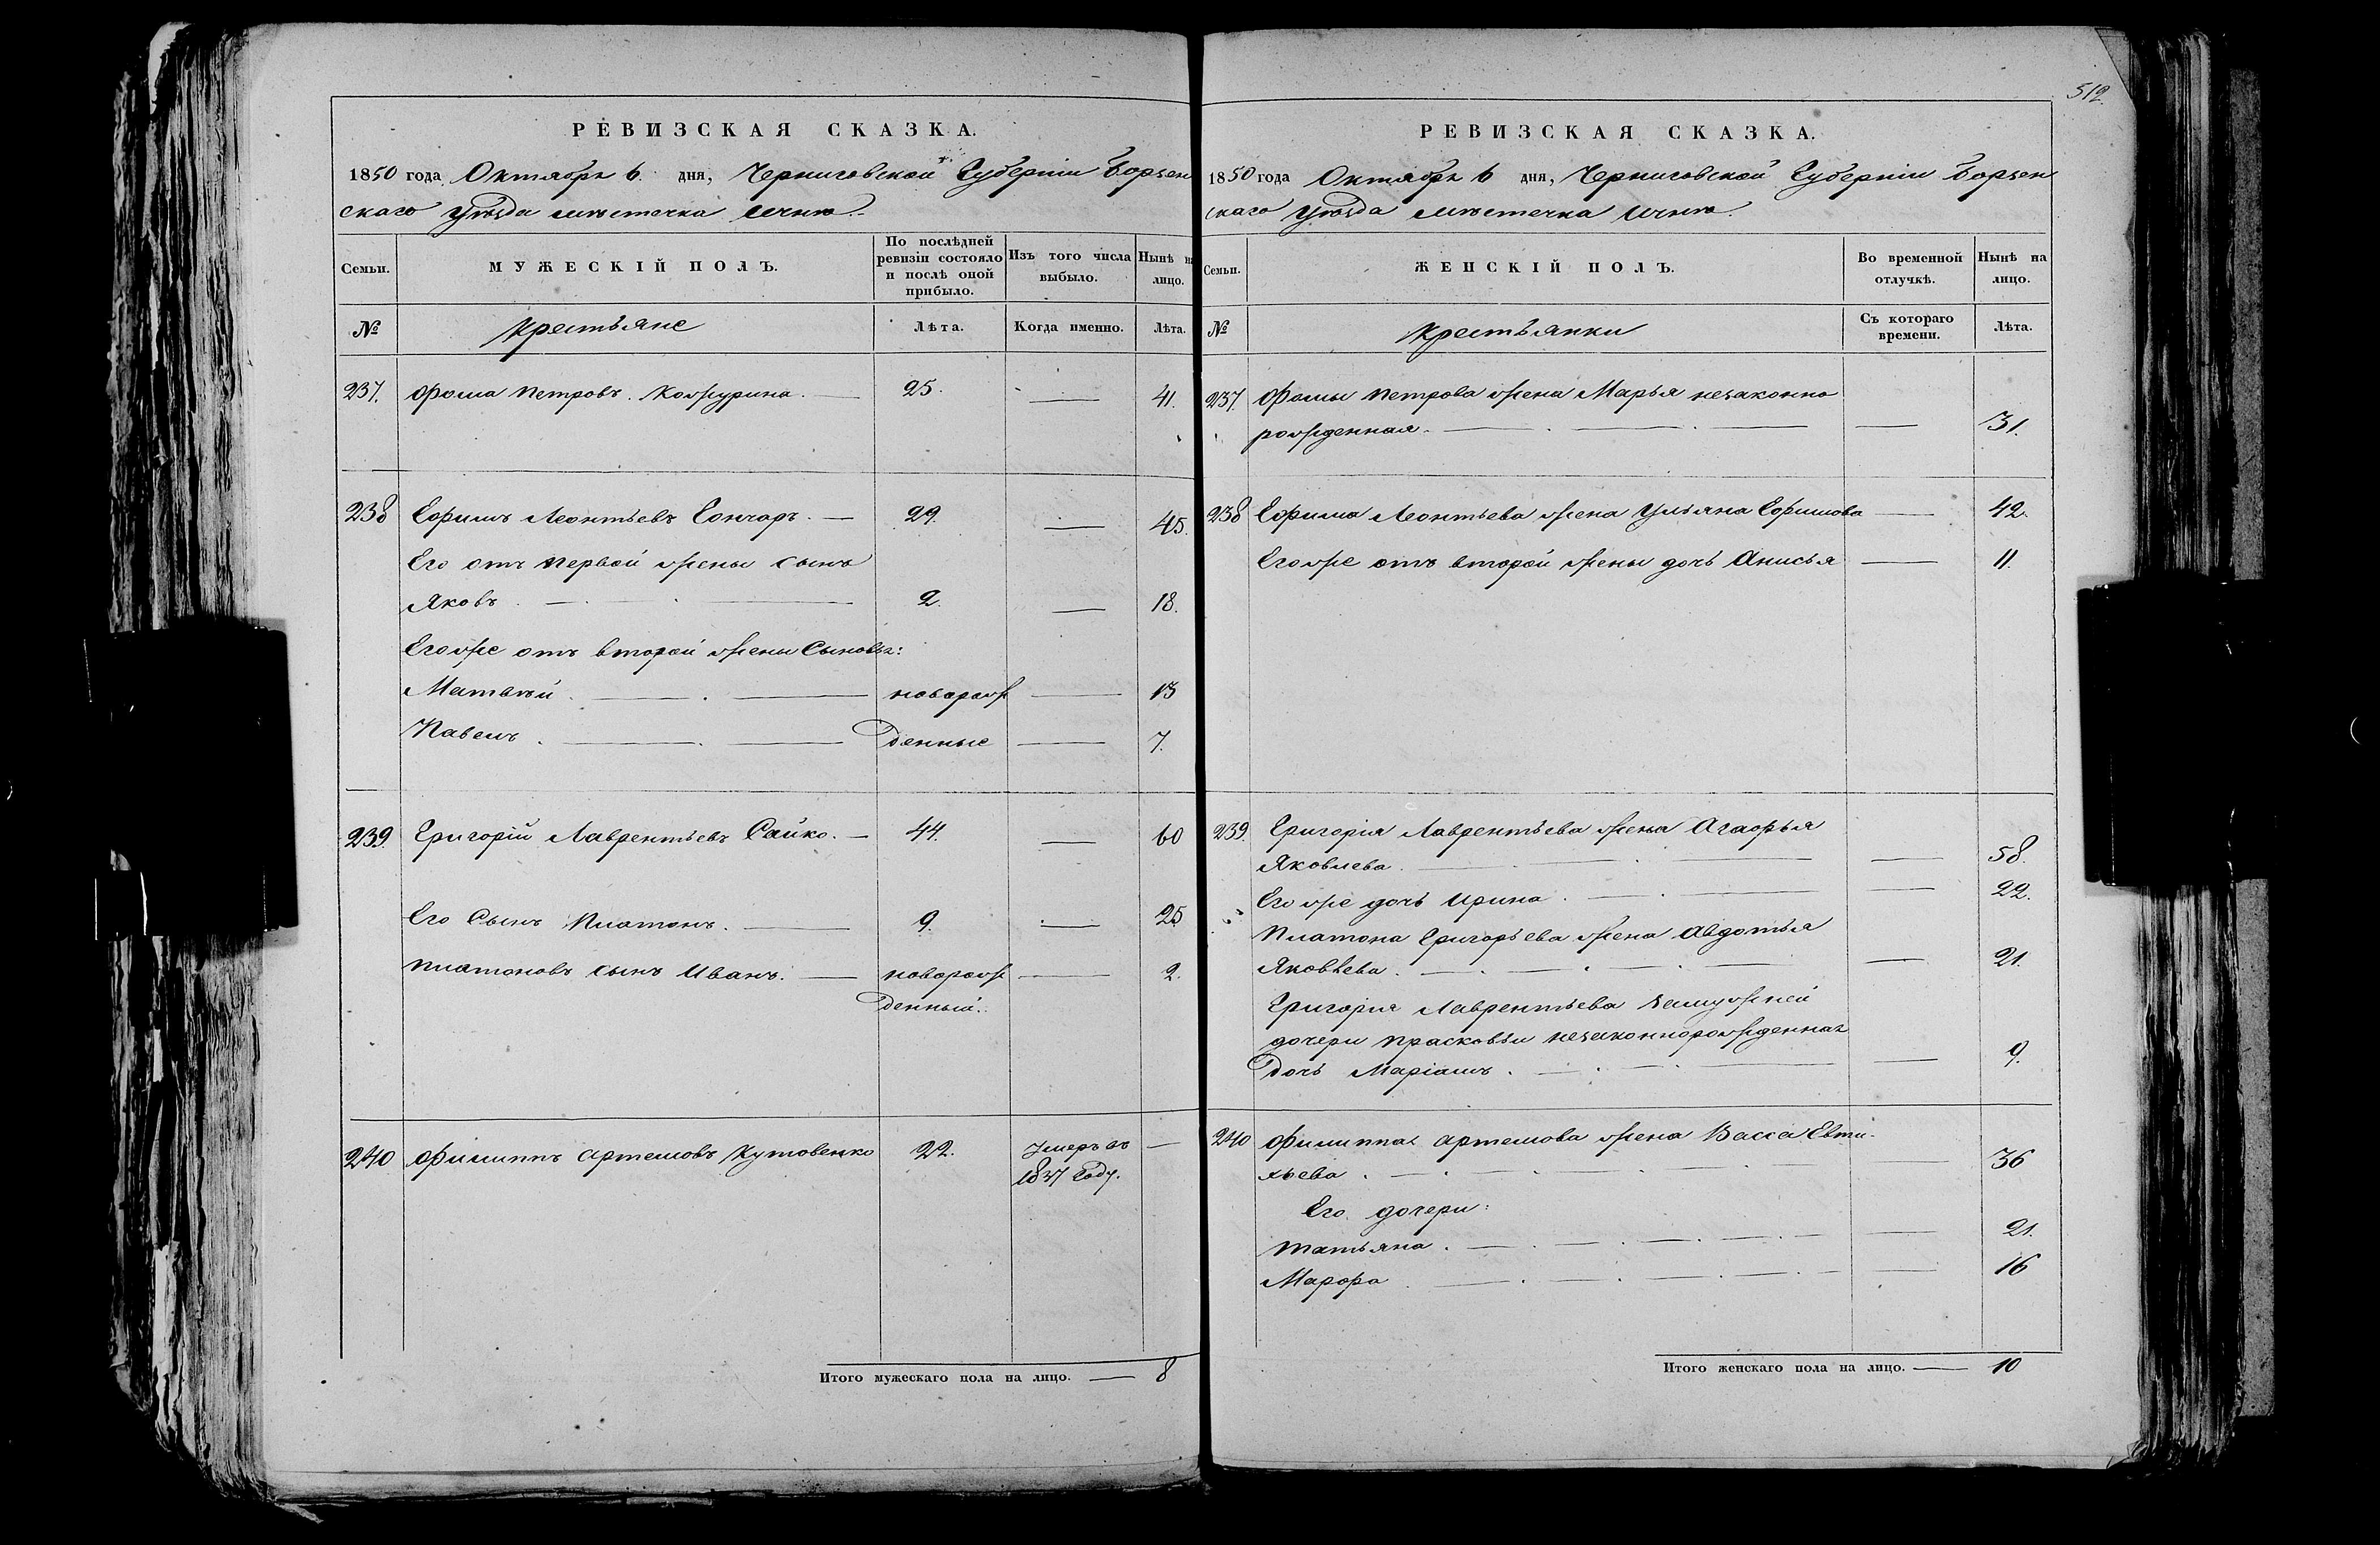 РЕВИЗСКАЯ СКАЗКА.
1850 года Октября 6 дня, Черниговской Губерніи Борзен
скаго уѣзда мѣстечка Ични.
Семьи. МУЖЕСКІЙ ПОЛЪ. По послѣдней ревизіи состояло и послѣ оной прибыло. Изъ того числа выбыло. Нынѣ на лицо.
№ Крестьяне Лѣта. Когда именно. Лѣта.
237. Фома Петровъ Кожурина. — 25. — 41.
238 Ефимъ Леонтьевъ Гончаръ. — 29. — 45.
Его отъ первой жены сынъ
Яковъ. — 2. — 18.
Егоже отъ второй жены Сыновья:
Матвѣй. — новорож — 13
Павелъ. — денные — 7.
239. Григорій Лаврентьевъ Сайко. — 44. — 60
Его Сынъ Платонъ. — 9. — 25
Платоновъ сынъ Иванъ. — новорож — 2.
денный.
240 Филиппъ Артемовъ Кутовенко 22. Умеръ въ —
1837 Году.
Итого мужескаго пола на лицо. — 8
512.
РЕВИЗСКАЯ СКАЗКА.
1850 года Октября 6 дня, Черниговской Губерніи Борзен
скаго уѣзда мѣстечка Ични.
Семьи. ЖЕНСКІЙ ПОЛЪ. Во временной отлучкѣ. Нынѣ на лицо.
№ Крестьянки Съ котораго времени. Лѣта.
237. Фомы Петрова жена Марья незаконно
рожденная. — — 31.
238 Ефима Леонтьева жена Ульяна Ефимова — 42.
Егоже отъ второй жены дочь Анисья — 11.
239. Григорія Лаврентьева жена Агафья
Яковлева. — — 58.
Егоже дочь Ирина. — — 22.
Платона Григорьева жена Авдотья
Яковлева. — — 21.
Григорія Лаврентьева замужней
дочери Прасковьи незаконнорожденная
Дочь Маріамъ. — — 9.
240 Филиппа Артемова жена Васса Евти-
хѣева. — — 36
Его дочери:
Татьяна. — — 21.
Марфа. — — 16
Итого женскаго пола на лицо. — 10